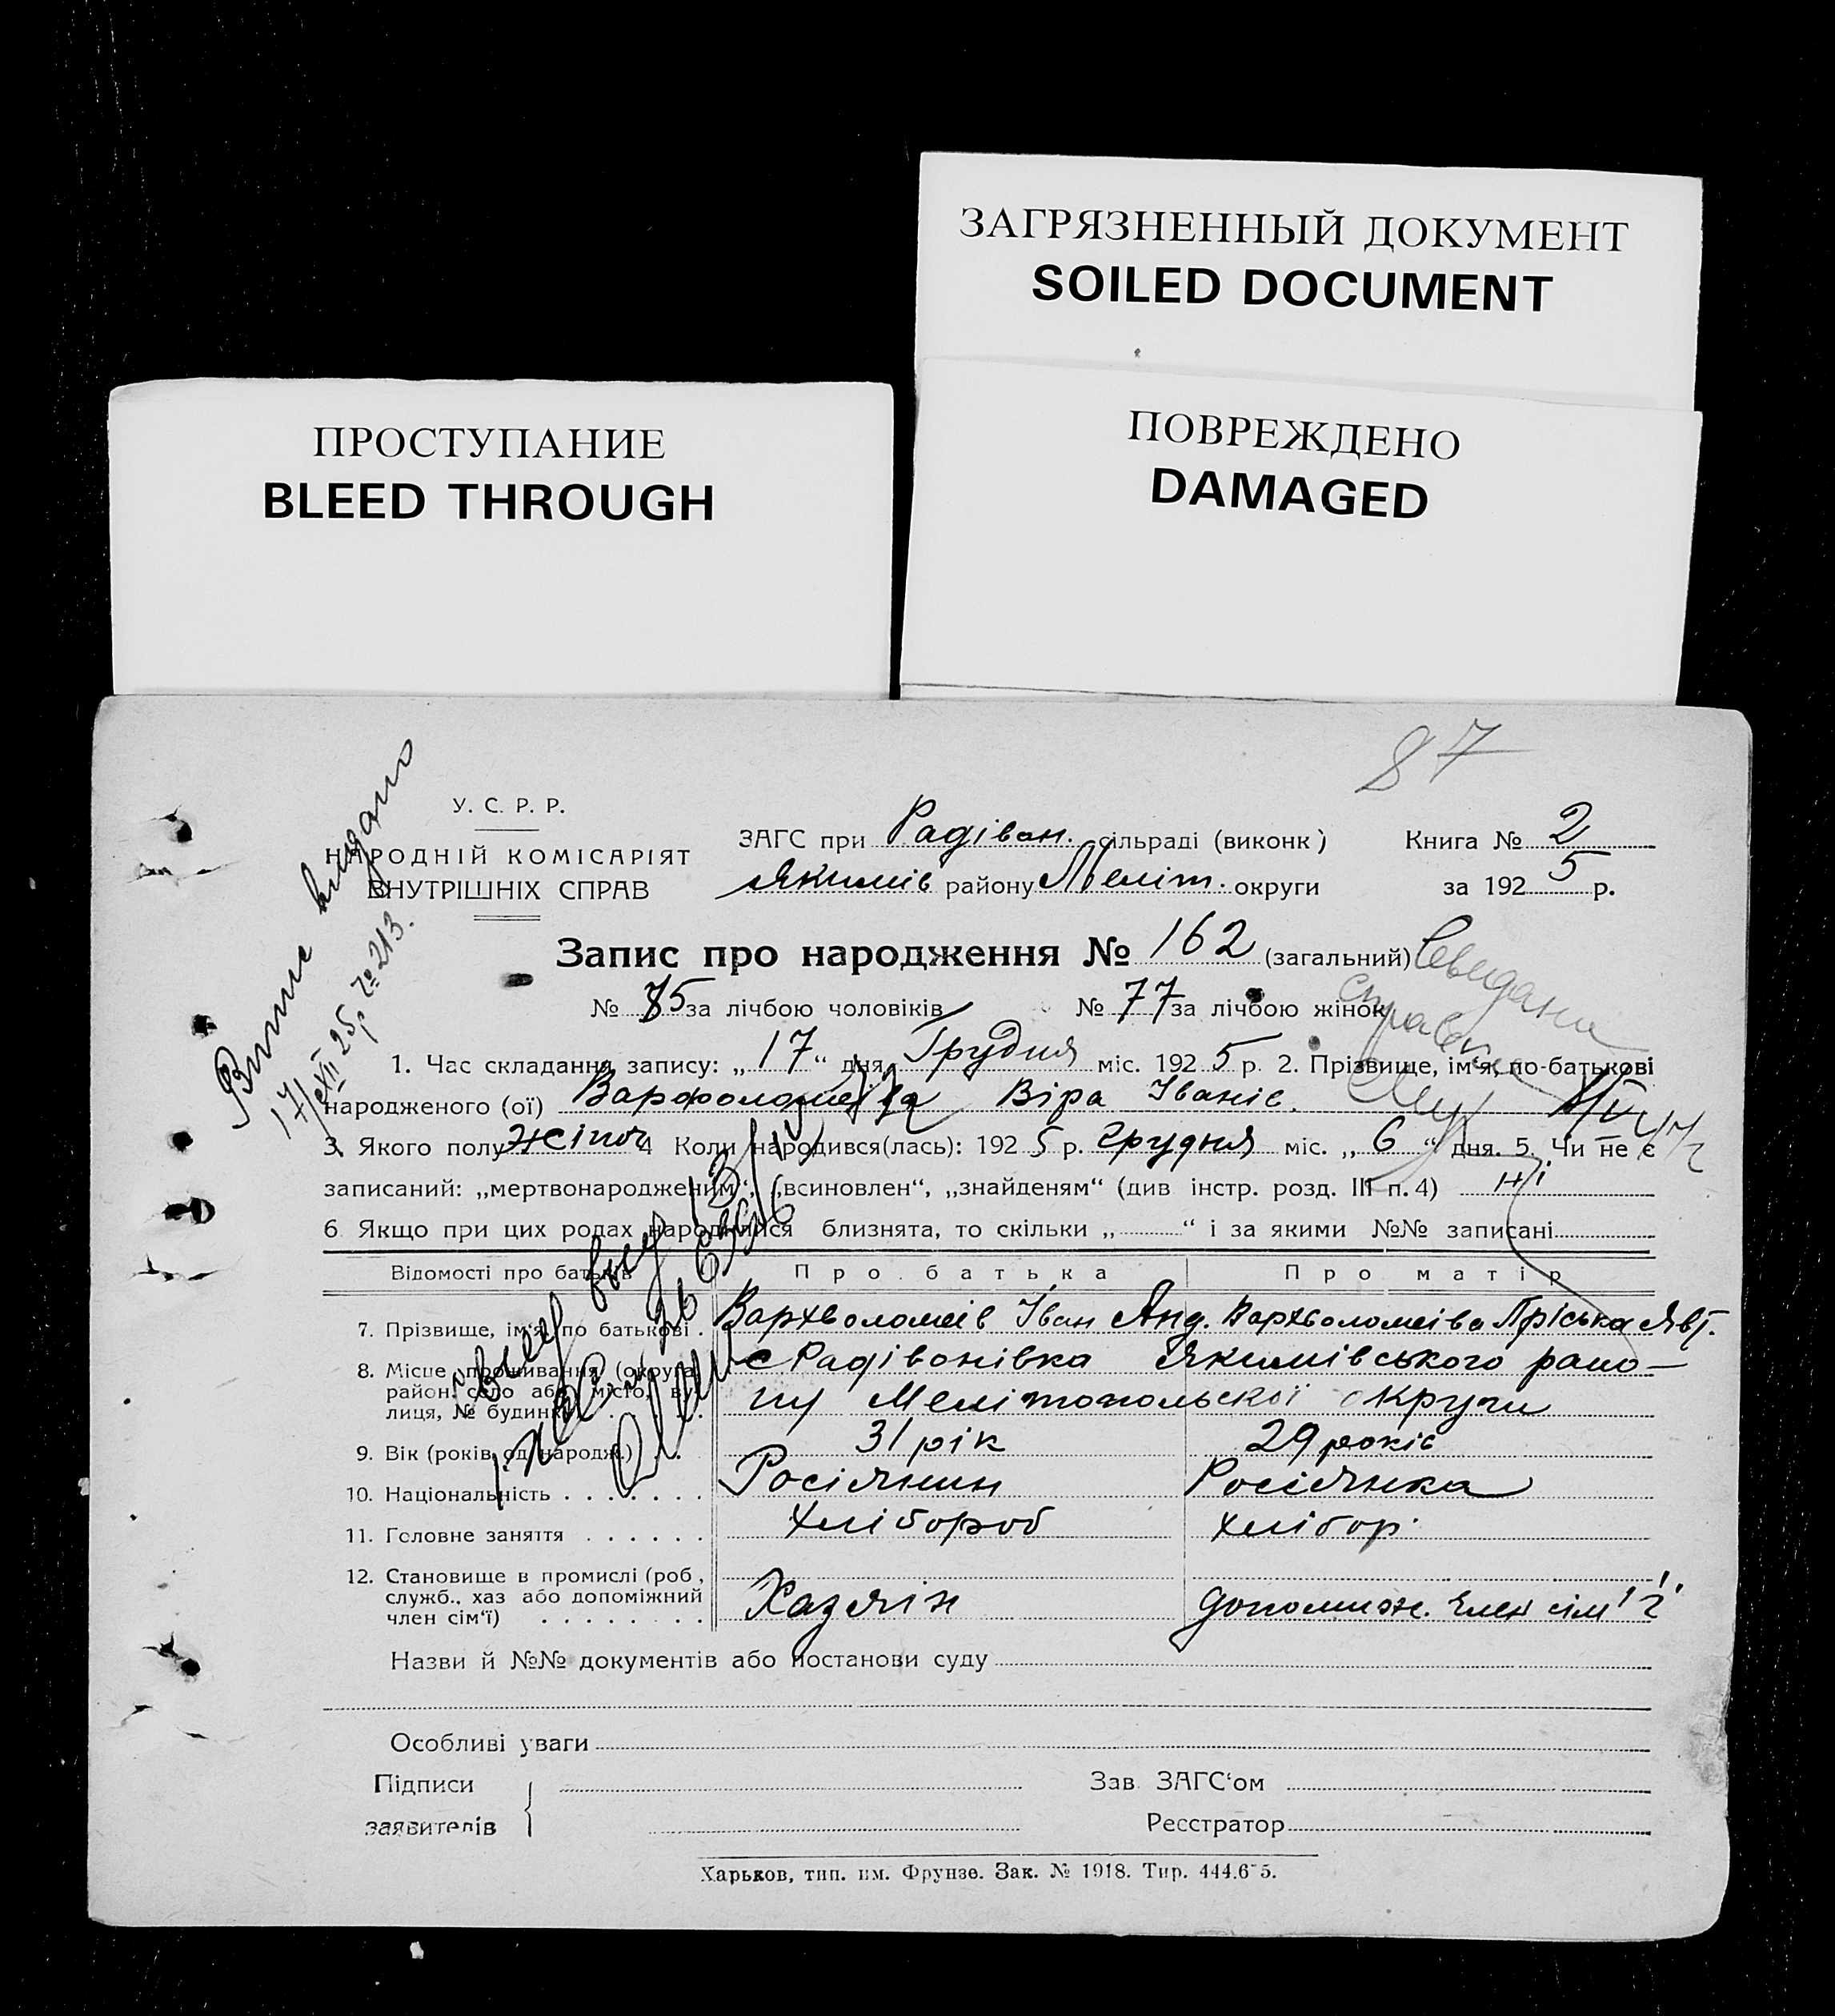 ЗАГРЯЗНЕННЫЙ ДОКУМЕНТ
SOILED DOCUMENT
ПРОСТУПАНИЕ
BLEED THROUGH
ПОВРЕЖДЕНО
DAMAGED
87
У. С. Р. Р.
НАРОДНІЙ КОМІСАРІЯТ
ВНУТРІШНІХ СПРАВ
ЗАГС при Радіван. сільраді (виконк) Книга № 2
Якимів району Меліт. округи за 1925 р.
Запис про народження № 162 (загальний)
№ 85 за лічбою чоловіків № 77 за лічбою жінок
видано
17/XII 25 р № 213.
1. Час складання запису: „17“ дня Грудня міс. 1925 р. 2. Прізвище, ім'я, по-батькові
народженого (ої) Віра Іванів.
3. Якого полу жіноч 4 Коли народився(лась): 1925 р. грудня міс. „6“ дня. 5. Чи не є
записаний: „мертвонародженим“, „всиновлен“, „знайденям“ (див інстр. розд. III п. 4) ні
6 Якщо при цих родах народилися близнята, то скільки „ “ і за якими №№ записані
Відомості про батьків Про батька Про матір
7. Прізвище, ім'я, по батькові . Вархволомеів Іван Анд. Вархволомеіва Пріська Явт.
8. Місце проживання (округа, район, село або місто, вулиця, № будинк с Радівонівка Якимівського райо-
ну Мелітопольскої округи
9. Вік (років од народж.) . . 31 рік 29 років
10. Національність . . . . . . . Росіянин Росіянка
11. Головне заняття . . . . . . Хлібороб хлібор.
12. Становище в промислі (роб., служб., хаз або допоміжний член сім'ї) . . . . . . . . Хазяїн допоміж. член сім'ї
Назви й №№ документів або постанови суду
Особливі уваги
Підписи заявителів
Зав. ЗАГС'ом
Реєстратор
Харьков, тип. им. Фрунзе. Зак. № 1918. Тир. 444.6 5.